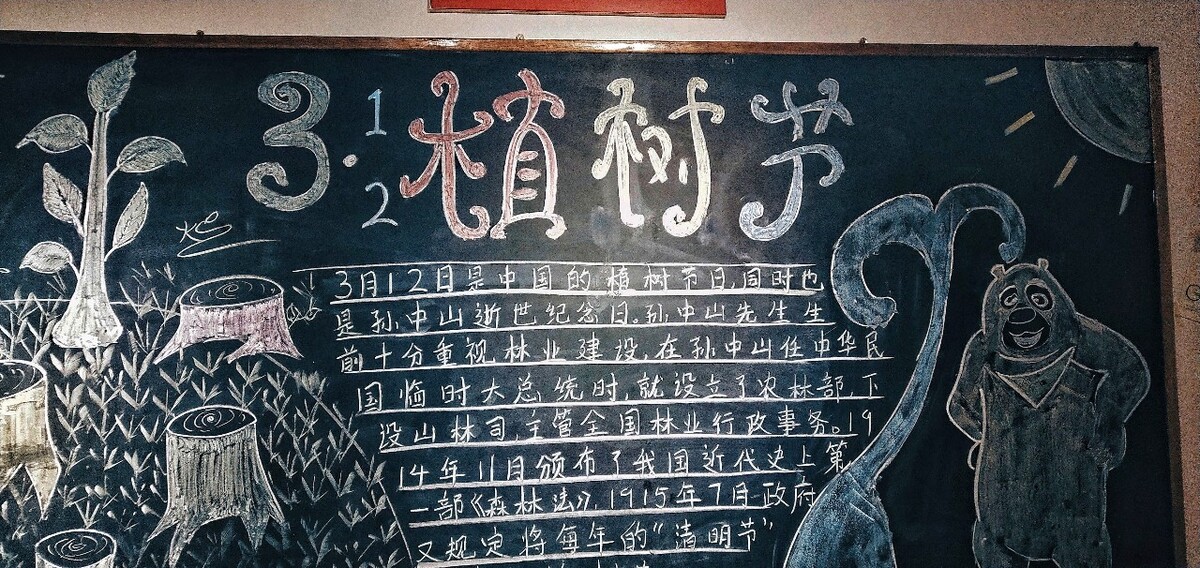 3.12植树节
3月12日是中国的植树节日,同时也
是孙中山逝世纪念日。孙中山先生生
前十分重视林业建设,在孙中山任中华民
国临时大总统时,就设立了农林部,下
设山林司,主管全国林业行政事务。19
14年11月颁布了我国近代史上第
一部《森林法》,1915年7月政府
又规定将每年的“清明节”